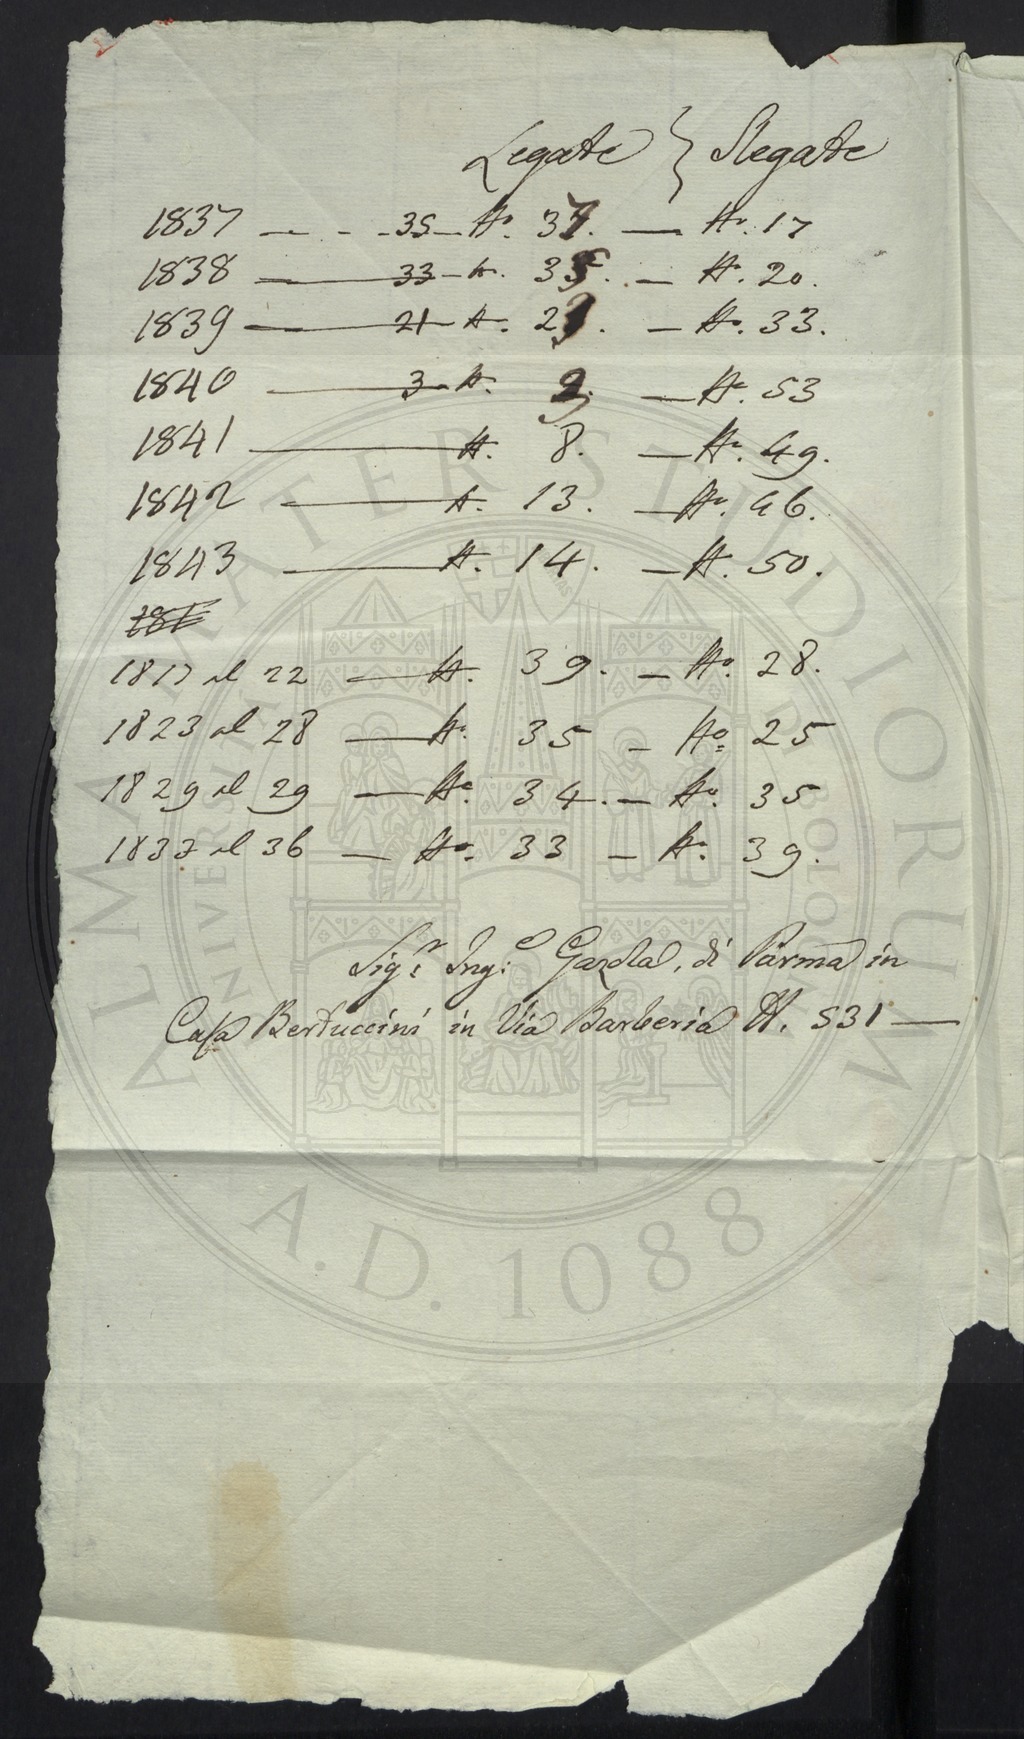 Legate } Slegate
1837 — - - 35 — N.º 37. — N.º 17
1838 — 33 — N. 35. — N. 20.
1839 — 21 — N. 23. — N.º 33.
1840 — 3 — N. 9. — N.º 53
1841 — N. 8. — N.º 49.
1842 — N. 13. — N.º 46.
1843 — N. 14. — N. 50.
184
1817 al 22 — N. 39. — N.º 28.
1823 al 28 — N.º 35 — N.º 25
1829 al 29 — N.º 34. — N.º 35
1832 al 36 — N.º 33 — N.º 39.
Sig.r Ing.e Gazola, di Parma in
Casa Bertuccini in Via Barberia N. 531 —
ALMA MATER STUDIORUM
A.D. 1088